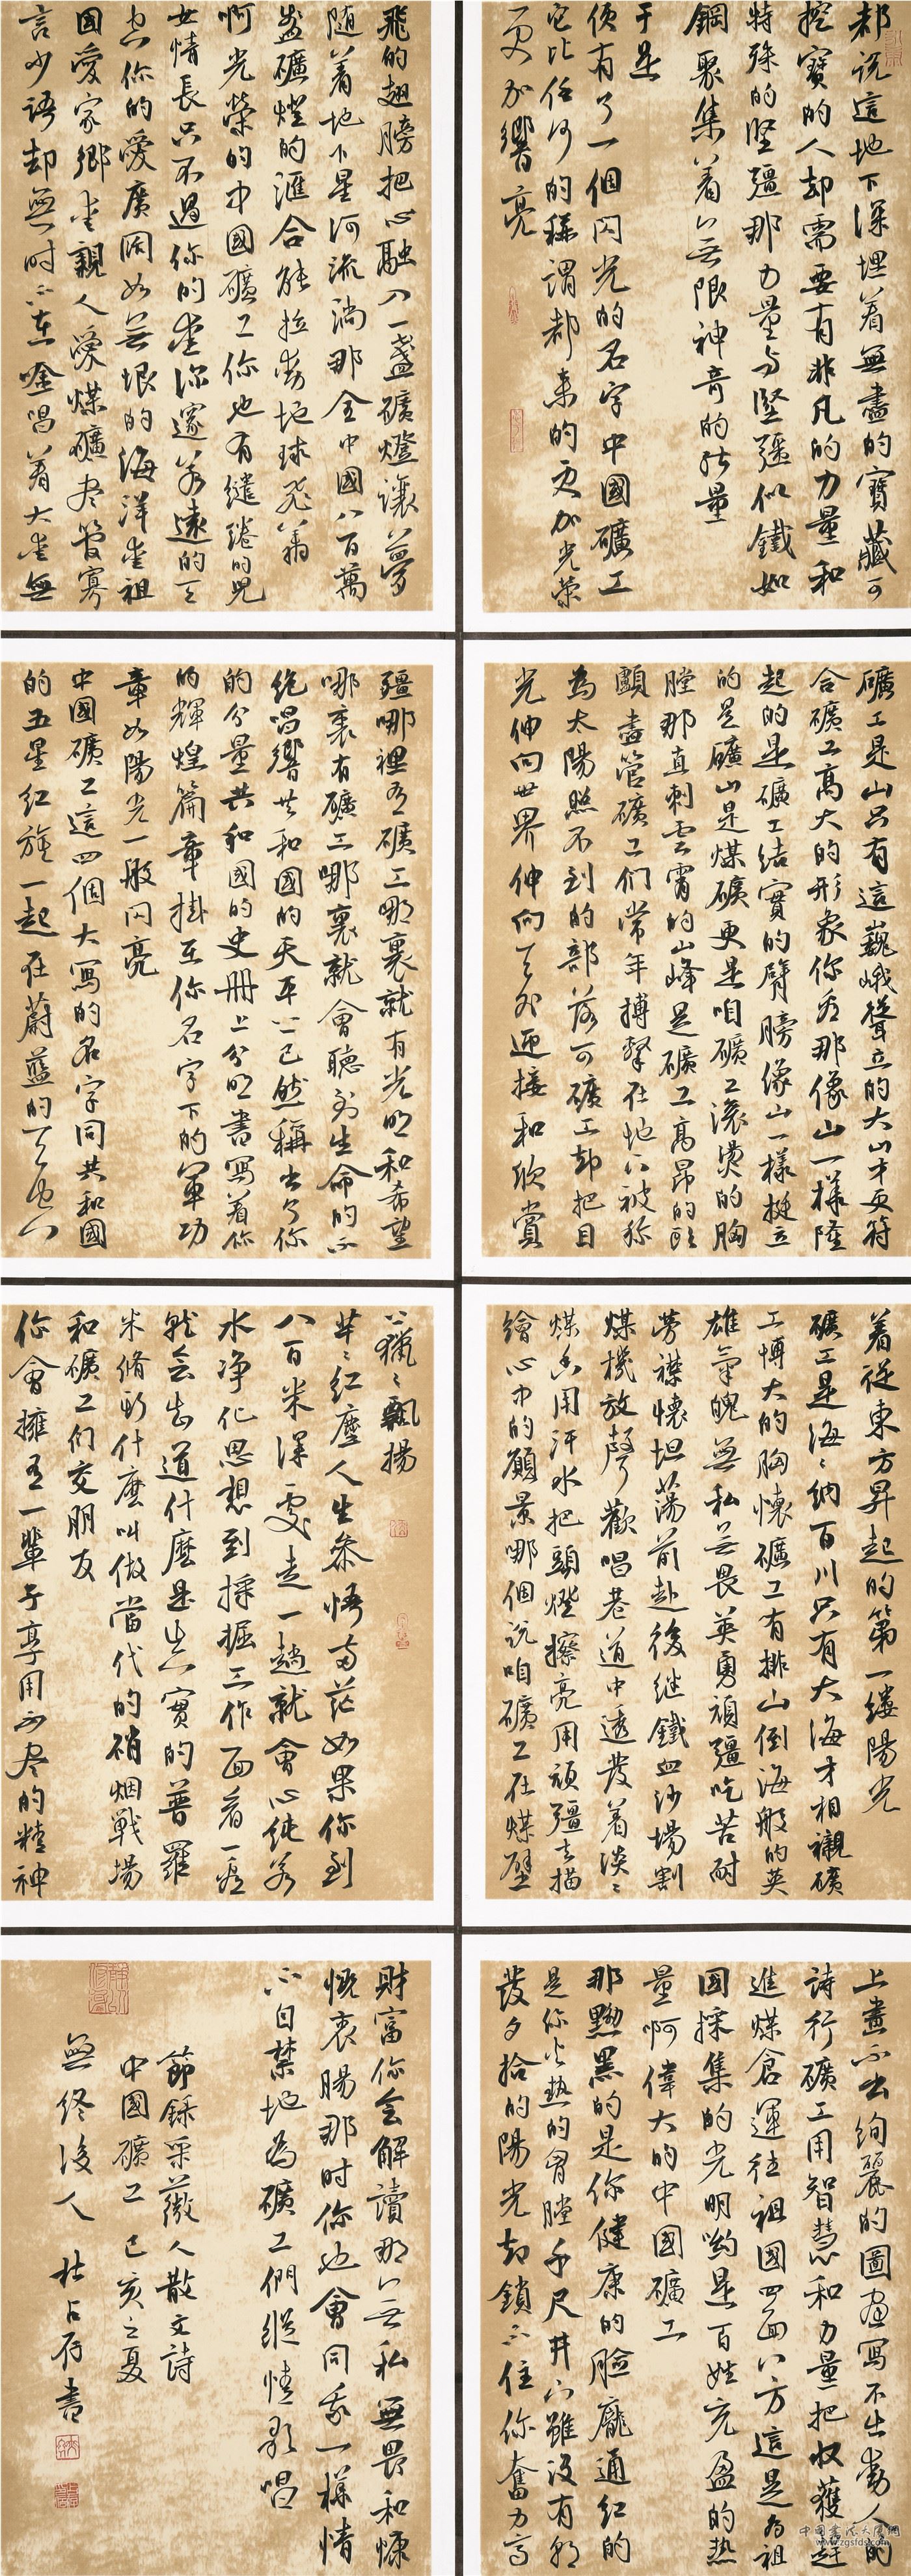 都說這地下深埋着無盡的寶藏可
挖寶的人却需要有非凡的力量和
特殊的堅彊那力量與堅彊似鐵如
鋼聚集着無限神奇的能量
于是
便有了一個閃光的名字中國礦工
它比任何的稱謂都来的更加光荣
更加響亮
礦工是山只有這巍峨聳立的大山才更符
合礦工高大的形象你看那像山一樣隆
起的是礦工結實的臂膀像山一樣挺立
的是礦山是煤礦更是咱礦工滚燙的胸
膛那直刺雲霄的山峰是礦工高昂的頭
顱盡管礦工们常年搏擊在地下被称
為太陽照不到的部落可礦工却把目
光伸向世界伸向天外迎接和欣賞
着從東方昇起的第一缕陽光
礦工是海海納百川只有大海才相襯礦
工博大的胸懷礦工有排山倒海般的英
雄氣魄無私無畏英勇頑彊吃苦耐
勞襟懷坦蕩前赴後继鐵血沙場割
煤機放聲歡唱巷道中透發着淡淡
煤香用汗水把頭燈擦亮用頑彊去描
繪心中的願景哪個說咱礦工在煤壁
上畫不出絢麗的圖画寫不出動人的
詩行礦工用智慧和力量把收獲趕
進煤倉運往祖國四面八方這是為祖
國採集的光明喲是百姓充盈的热
量啊偉大的中國礦工
那黝黑的是你健康的臉龐通红的
是你火热的胸膛千尺井下雖没有朝
發夕拾的陽光却鎖不住你奮力高
飛的翅膀把心融入一盞礦燈讓夢
随着地下星河流淌那全中國八百萬
盞礦燈的滙合能拉動地球飛翔
啊光榮的中國礦工你也有缱绻的兒
女情長只不過你的愛深邃若遠的天
空你的愛廣闊如無垠的海洋愛祖
國愛家鄉愛親人愛煤礦盡管寡
言少語却無時不在唫唱着大愛無
彊哪裡有礦工哪裏就有光明和希望
哪裏有礦工哪裏就會聽到生命的
絶唱響共和國的天平上已然稱出了你
的分量共和國的史冊上分明書寫着你
的輝煌篇章掛在你名字下的軍功
章如陽光一般闪亮
中國礦工這四個大寫的名字同共和國
的五星红旗一起在蔚藍的天空
上獵獵飄揚
芸芸红塵人生叅悟白茫如果你到
八百米深處走一趟就會心純若
水净化思想到採掘工作面看一看
就會知道什麽是忠實的普羅
米脩斯什麽叫做當代的硝烟戰場
和礦工们交朋友
你會擁有一輩子享用不盡的精神
財富你會解讀那無私無畏和慷
慨衷腸那時你也會同我一樣情
不自禁地為礦工們縱情歌唱
節錄采薇人散文詩
中國礦工己亥之夏
無終後人杜占府書
中国書法大厦网
www.zgsfds.com